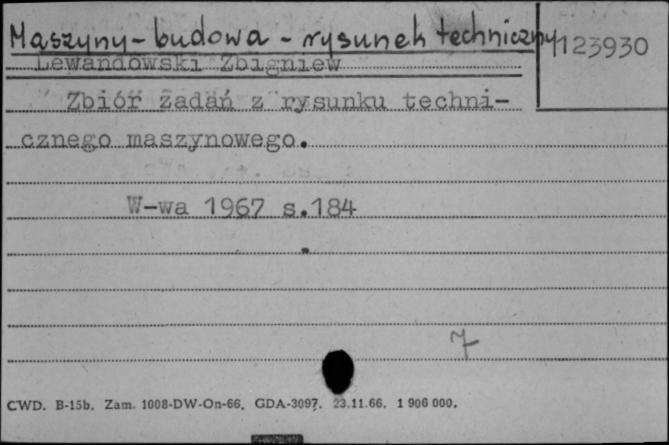 Maszyny - budowa - rysunek techniczny
123930
Lewandowski Zbigniew
Zbiór zadań z rysunku techni-
cznego maszynowego.
W-wa 1967 s.184
7
CWD. B-15b. Zam. 1008-DW-On-66. GDA-3097. 23.11.66. 1 906 000.